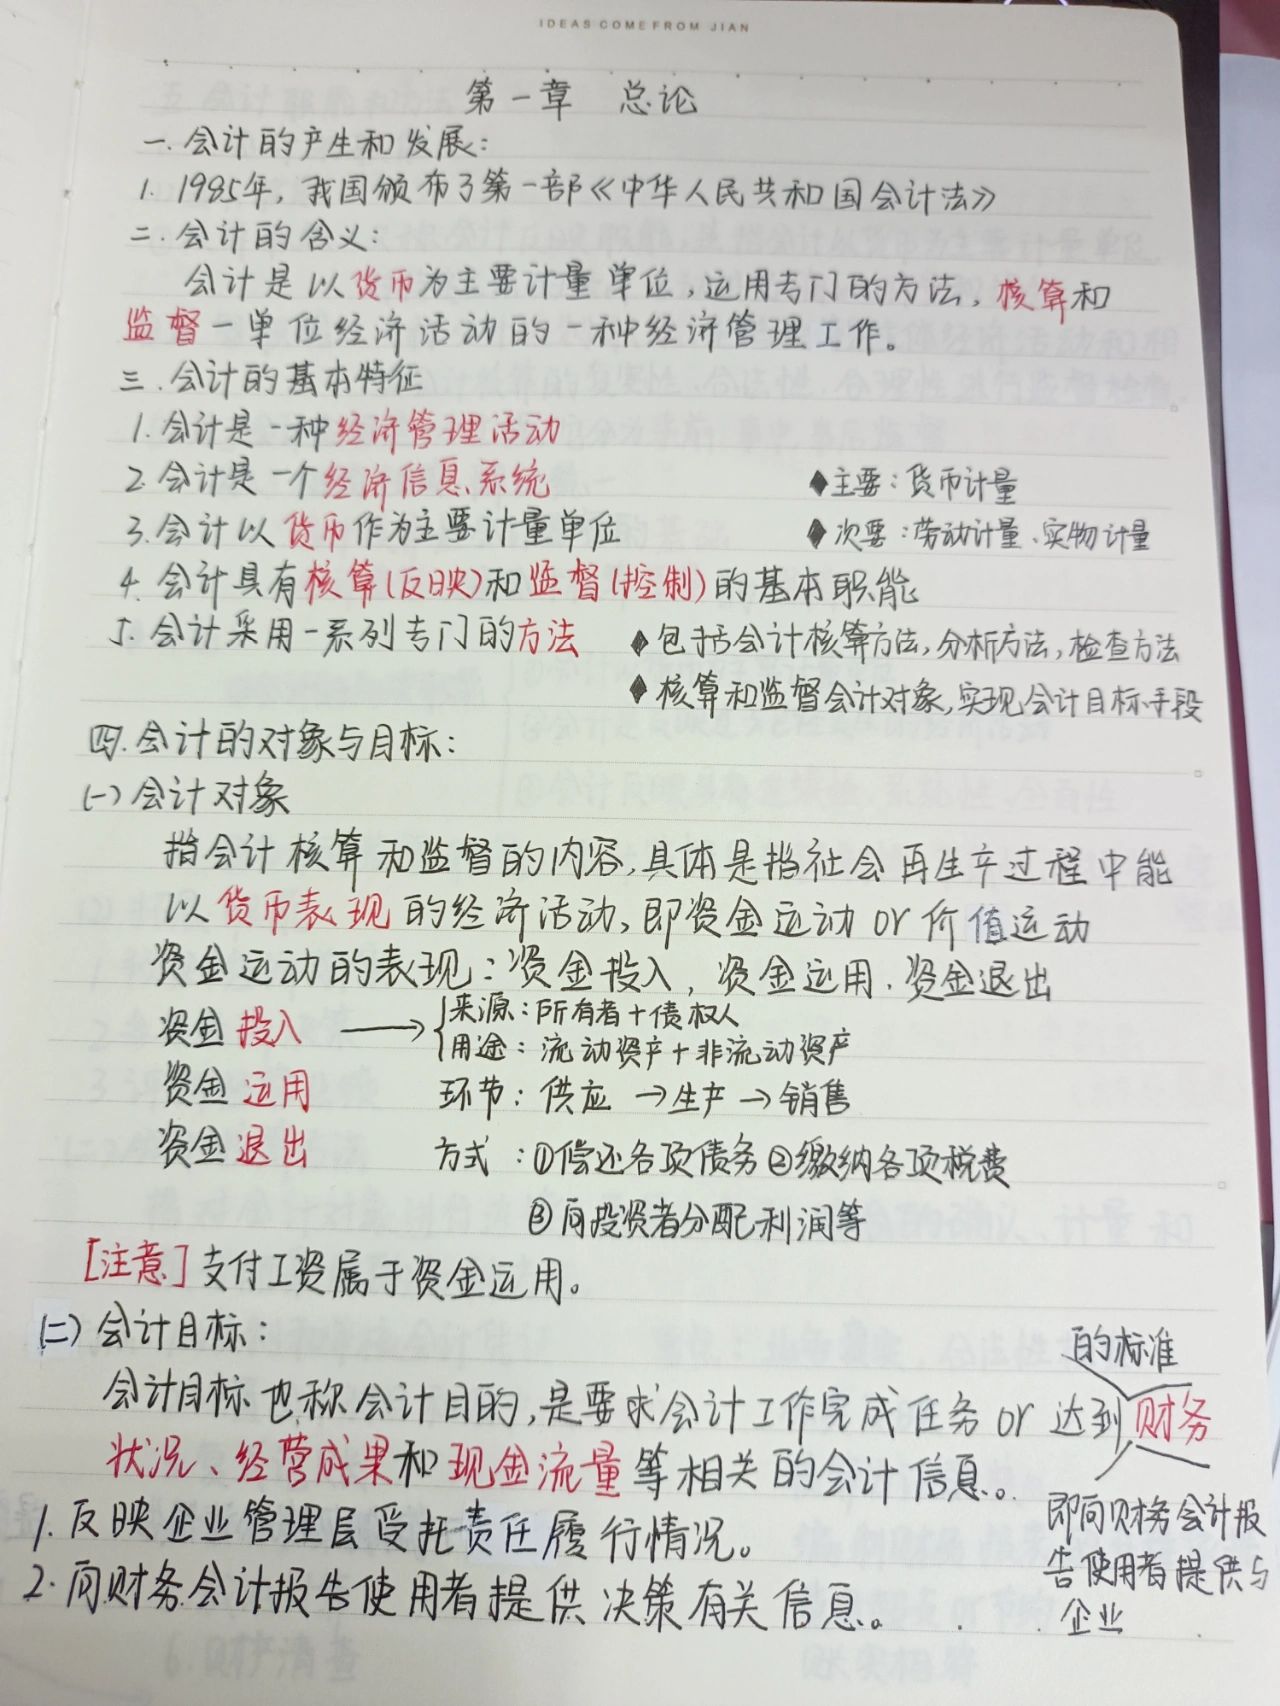 IDEAS COME FROM JIAN
第一章 总论
一.会计的产生和发展:
1. 1985年, 我国颁布了第一部《中华人民共和国会计法》
二.会计的含义:
会计是以货币为主要计量单位,运用专门的方法,核算和
监督一单位经济活动的一种经济管理工作。
三.会计的基本特征
1.会计是一种经济管理活动
2.会计是一个经济信息系统 ◆主要:货币计量
3.会计以货币作为主要计量单位 ◆次要:劳动计量、实物计量
4.会计具有核算(反映)和监督(控制)的基本职能
5.会计采用一系列专门的方法 ◆包括会计核算方法,分析方法,检查方法
◆核算和监督会计对象,实现会计目标手段
四.会计的对象与目标:
(一)会计对象
指会计核算和监督的内容,具体是指社会再生产过程中能
以货币表现的经济活动,即资金运动or价值运动
资金运动的表现:资金投入,资金运用.资金退出
资金投入 → {来源:所有者+债权人
用途:流动资产+非流动资产
资金运用 环节:供应→生产→销售
资金退出 方式:①偿还各项债务②缴纳各项税费
③向投资者分配利润等
[注意]支付工资属于资金运用。
(二)会计目标:
的标准
会计目标也称会计目的,是要求会计工作完成任务or达到财务
状况、经营成果和现金流量等相关的会计信息。
即向财务会计报
告使用者提供与
企业
1.反映企业管理层受托责任履行情况。
2.向财务会计报告使用者提供决策有关信息。